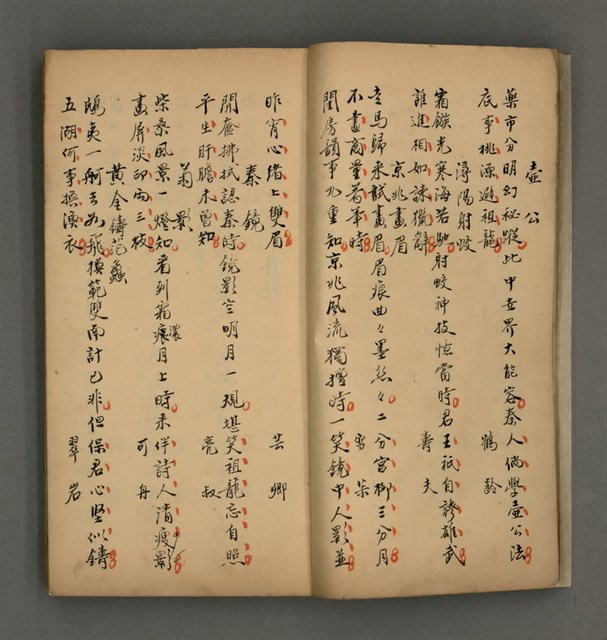 壺公
藥市分明幻秘蹤此中世界大能容秦人倘學壺公法
底事桃源避祖龍 鶴齡
潯陽射蛟
霜鏃光寒海若馳射蛟神技憶當時君王祇自誇雄武
誰進相如諫獵辭 壽夫
京兆畫眉
走馬歸來試畫眉眉痕曲々墨絲々二分宮柳三分月
不畫商量着筆時 雪
閨房韻事九重知京兆風流獨擅時一笑鏡中人影並
昨宵心緒上雙眉 芸卿
秦鏡
開奩拂拭認秦時鏡影空明月一規堪笑祖龍忘自照
平生肝膽未曾知 亮叔
菊影
柴桑風景一燈知看到霜痕濃月上時來伴詩人清瘦影
畫屏淡印兩三枝 可舟
黃金鑄范蠡
鴟夷一舸去如飛模範雙南計已非但保君心堅似鑄
五湖何事換漁衣 翠岩